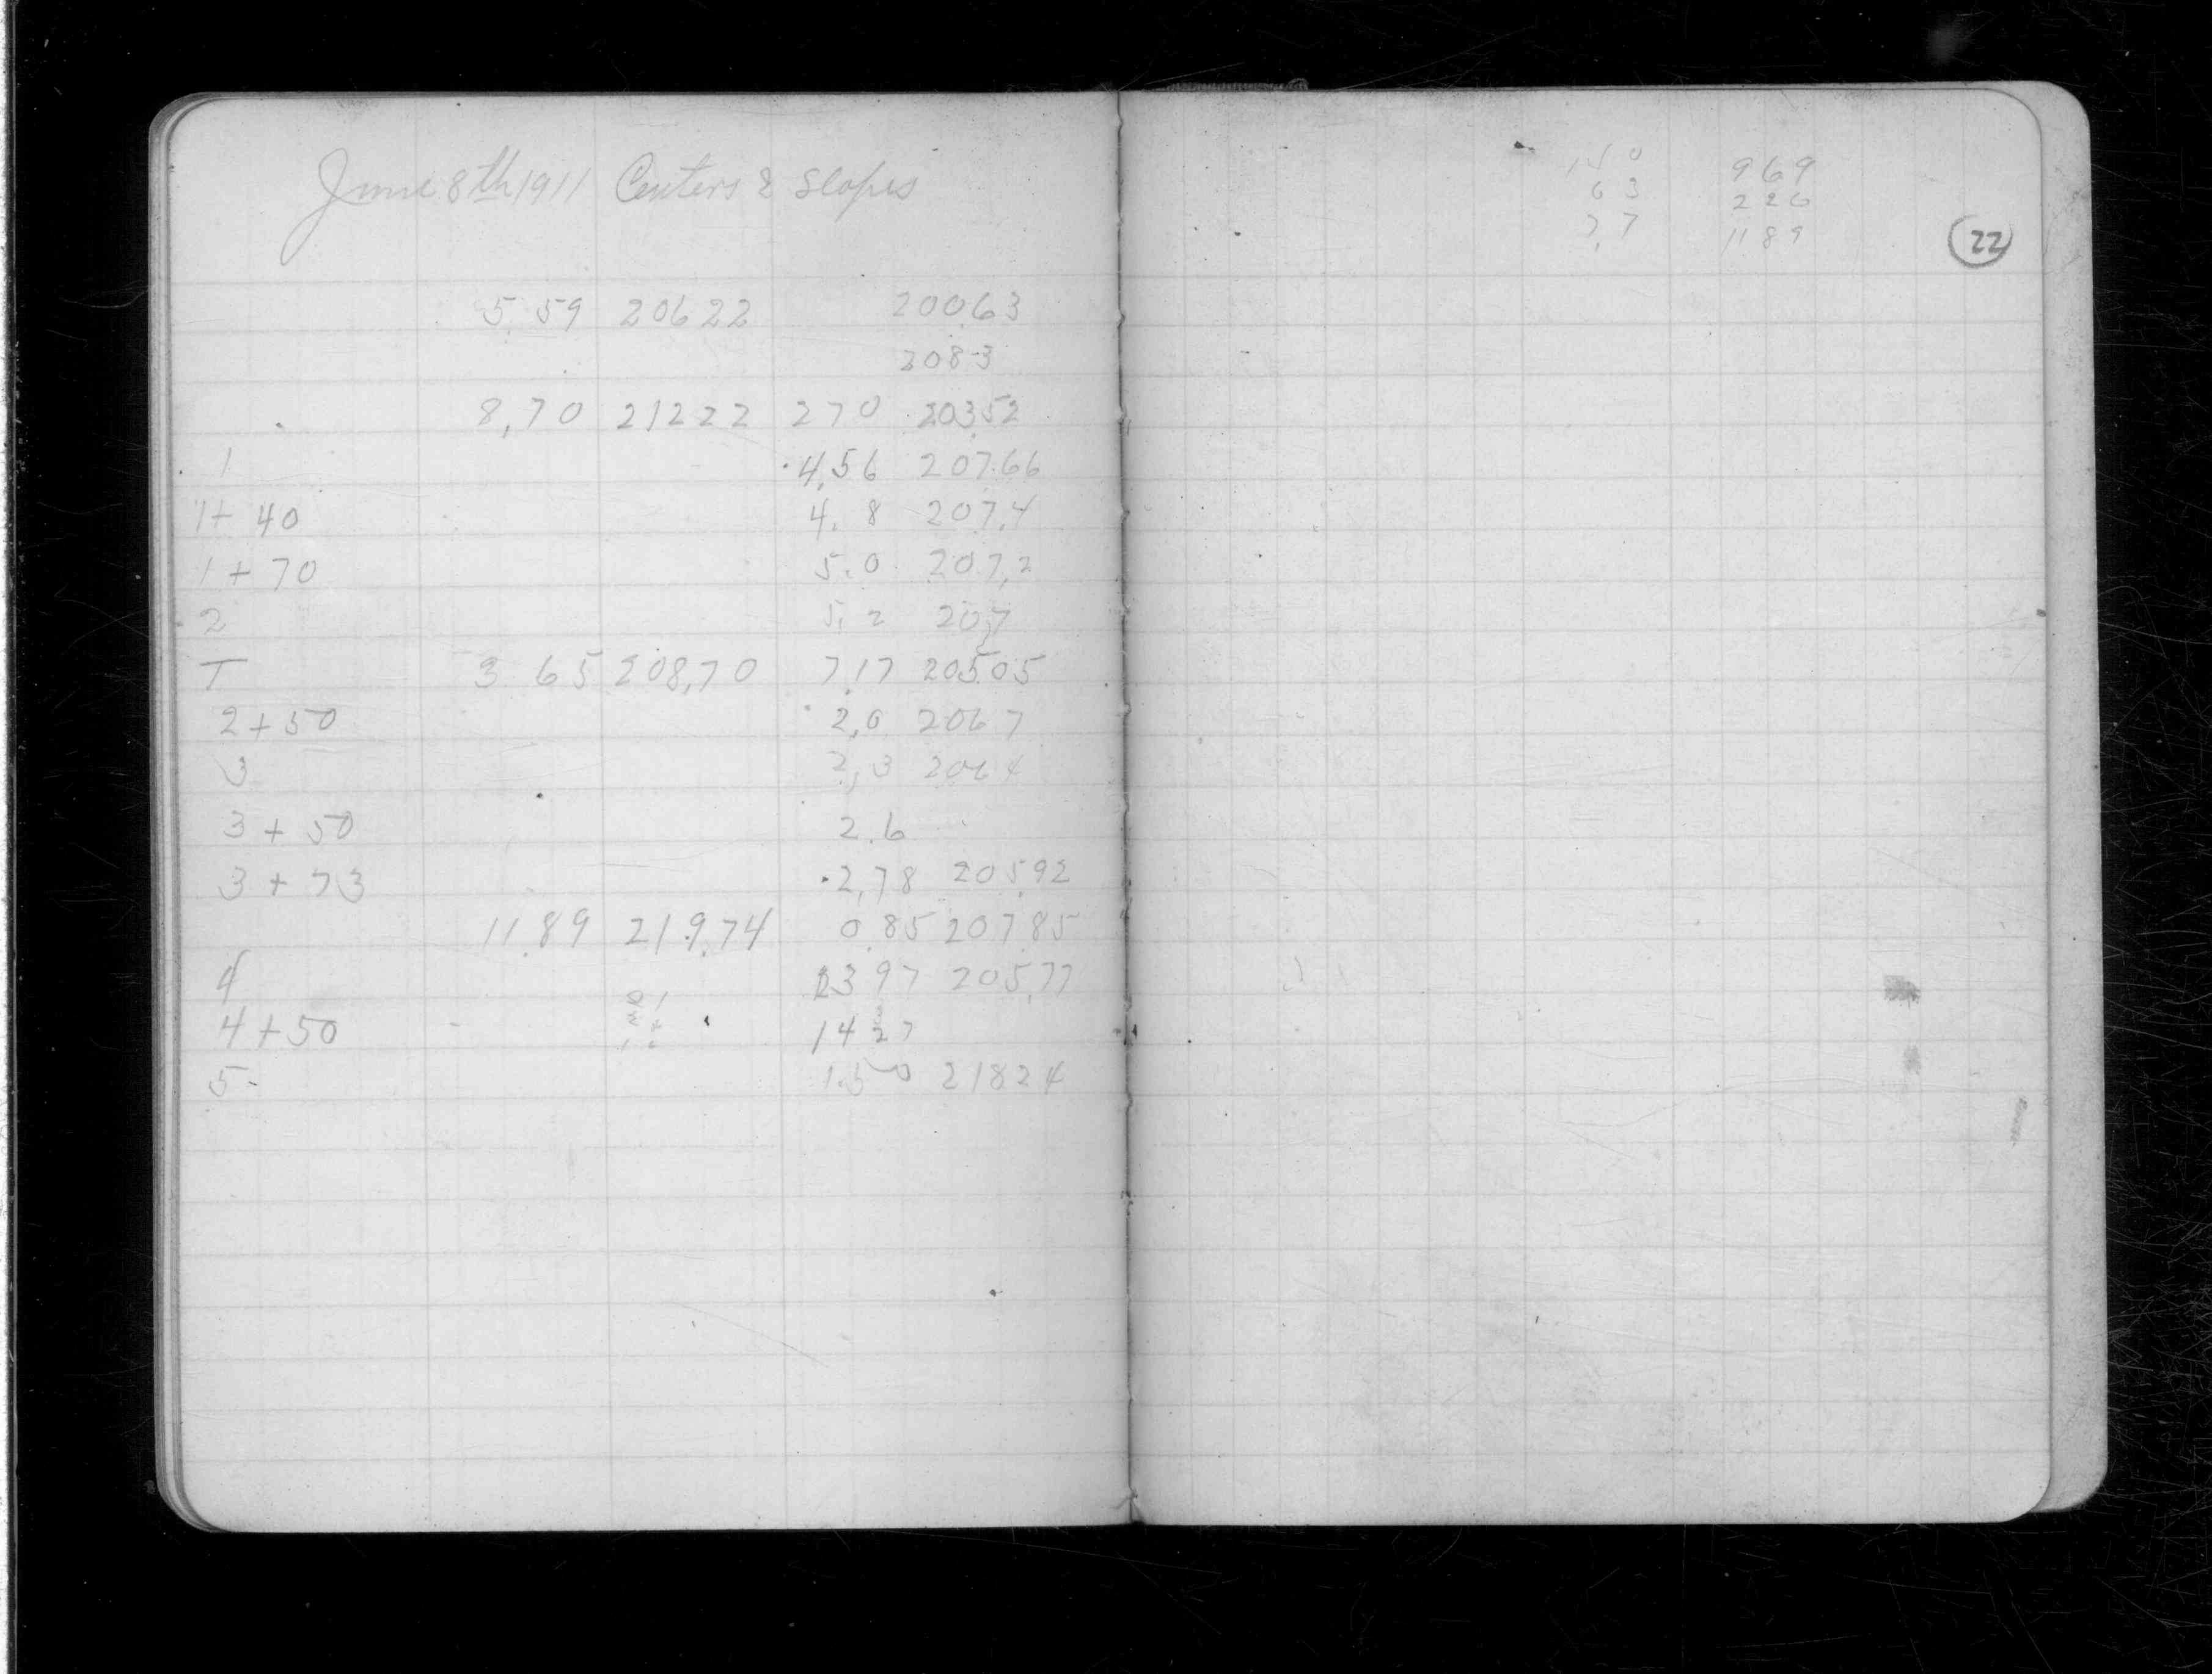 June 8th 1911 Centers & Slopes
5.59 206.22 200.63
208.3
8.70 212.22 2.70 203.52
1 4.56 207.66
1 + 40 4.8 207.4
1 + 70 5.0 207.2
2 5.2 207
T 3.65 208.70 7.17 205.05
2 + 50 2.0 206.7
3 2.3 206.4
3 + 50 2.6
3 + 73 2.78 205.92
11.89 219.74 0.85 207.85
4 13.97 205.77
4 + 50 14 27
5 1.50 218.24
150 969
63 226
7.7 1189
22